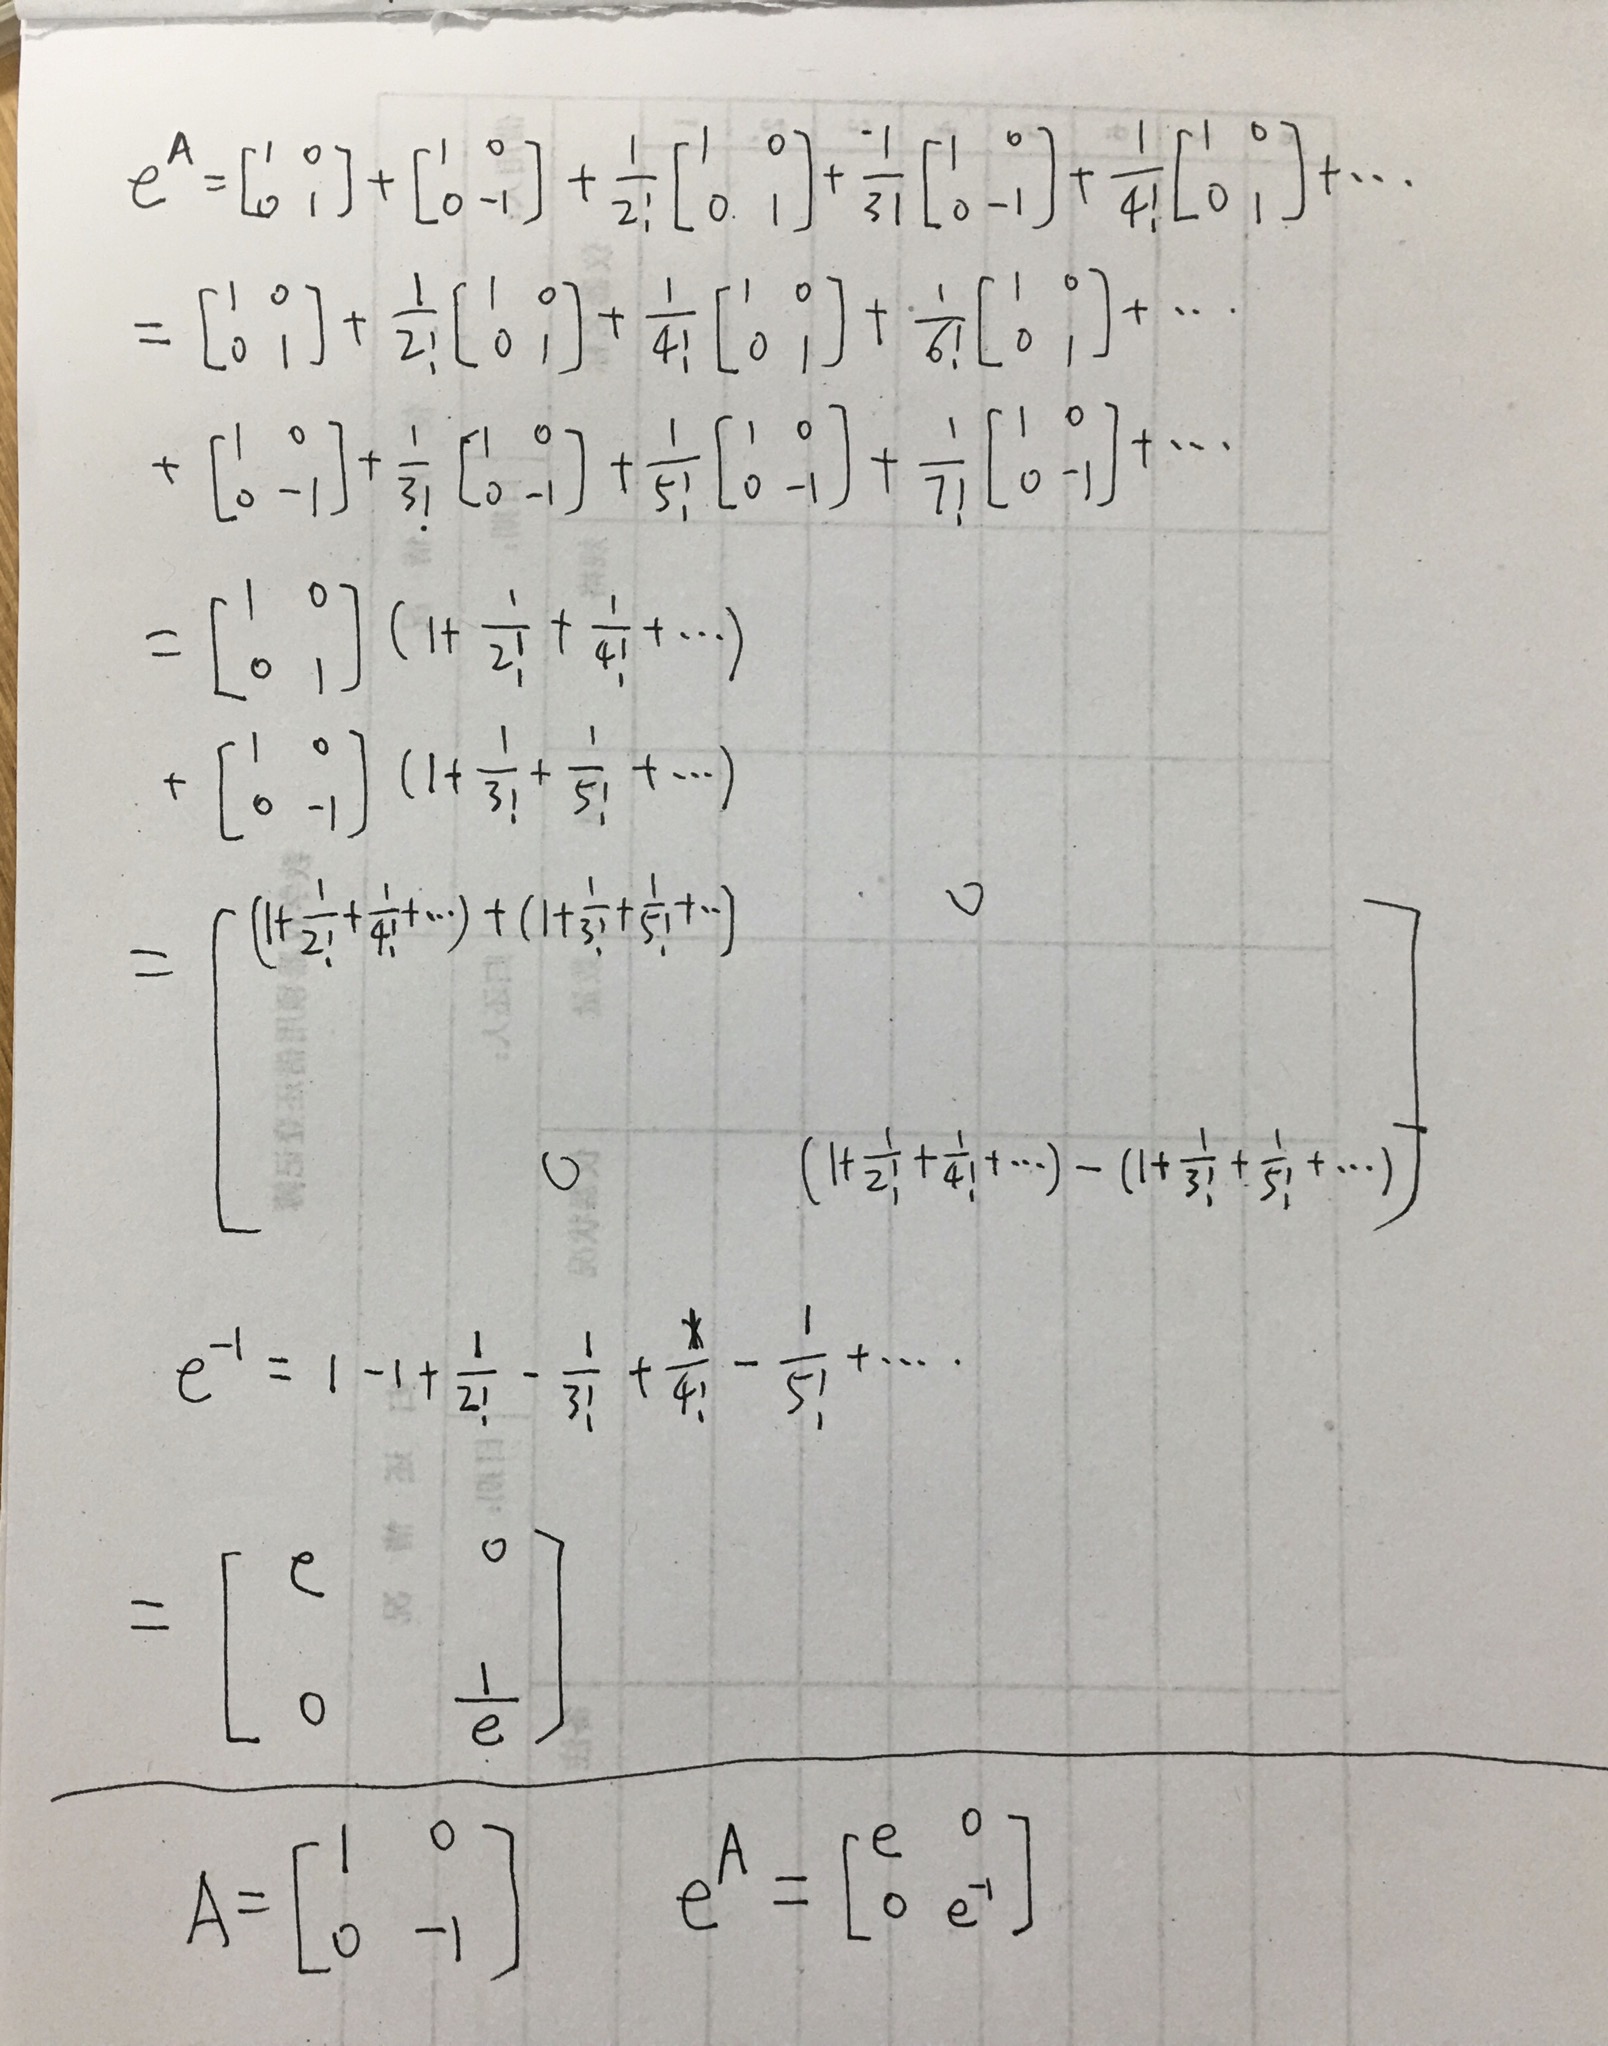 e^A = [1 0; 0 1] + [1 0; 0 -1] + 1/2! [1 0; 0 1] + 1/3! [1 0; 0 -1] + 1/4! [1 0; 0 1] + ...
= [1 0; 0 1] + 1/2! [1 0; 0 1] + 1/4! [1 0; 0 1] + 1/6! [1 0; 0 1] + ...
+ [1 0; 0 -1] + 1/3! [1 0; 0 -1] + 1/5! [1 0; 0 -1] + 1/7! [1 0; 0 -1] + ...
= [1 0; 0 1] (1 + 1/2! + 1/4! + ...)
+ [1 0; 0 -1] (1 + 1/3! + 1/5! + ...)
= [(1 + 1/2! + 1/4! + ...) + (1 + 1/3! + 1/5! + ...) 0; 0 (1 + 1/2! + 1/4! + ...) - (1 + 1/3! + 1/5! + ...)]
e^-1 = 1 - 1 + 1/2! - 1/3! + 1/4! - 1/5! + ....
= [e 0; 0 1/e]
A = [1 0; 0 -1] e^A = [e 0; 0 e^-1]